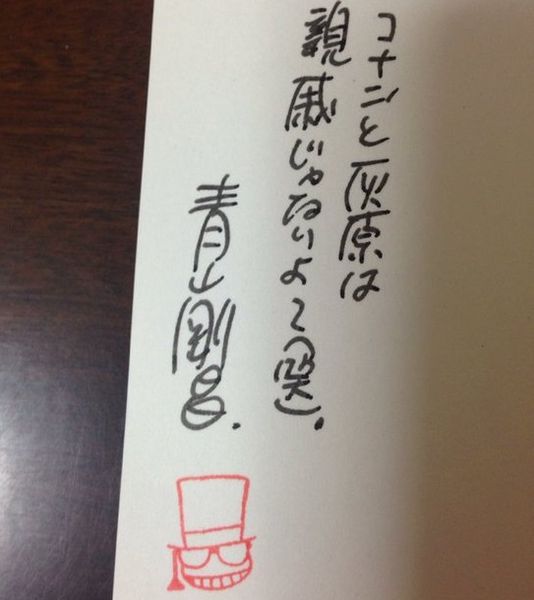 コナンと灰原は
親戚じゃないよ〜(笑).
青山剛昌.